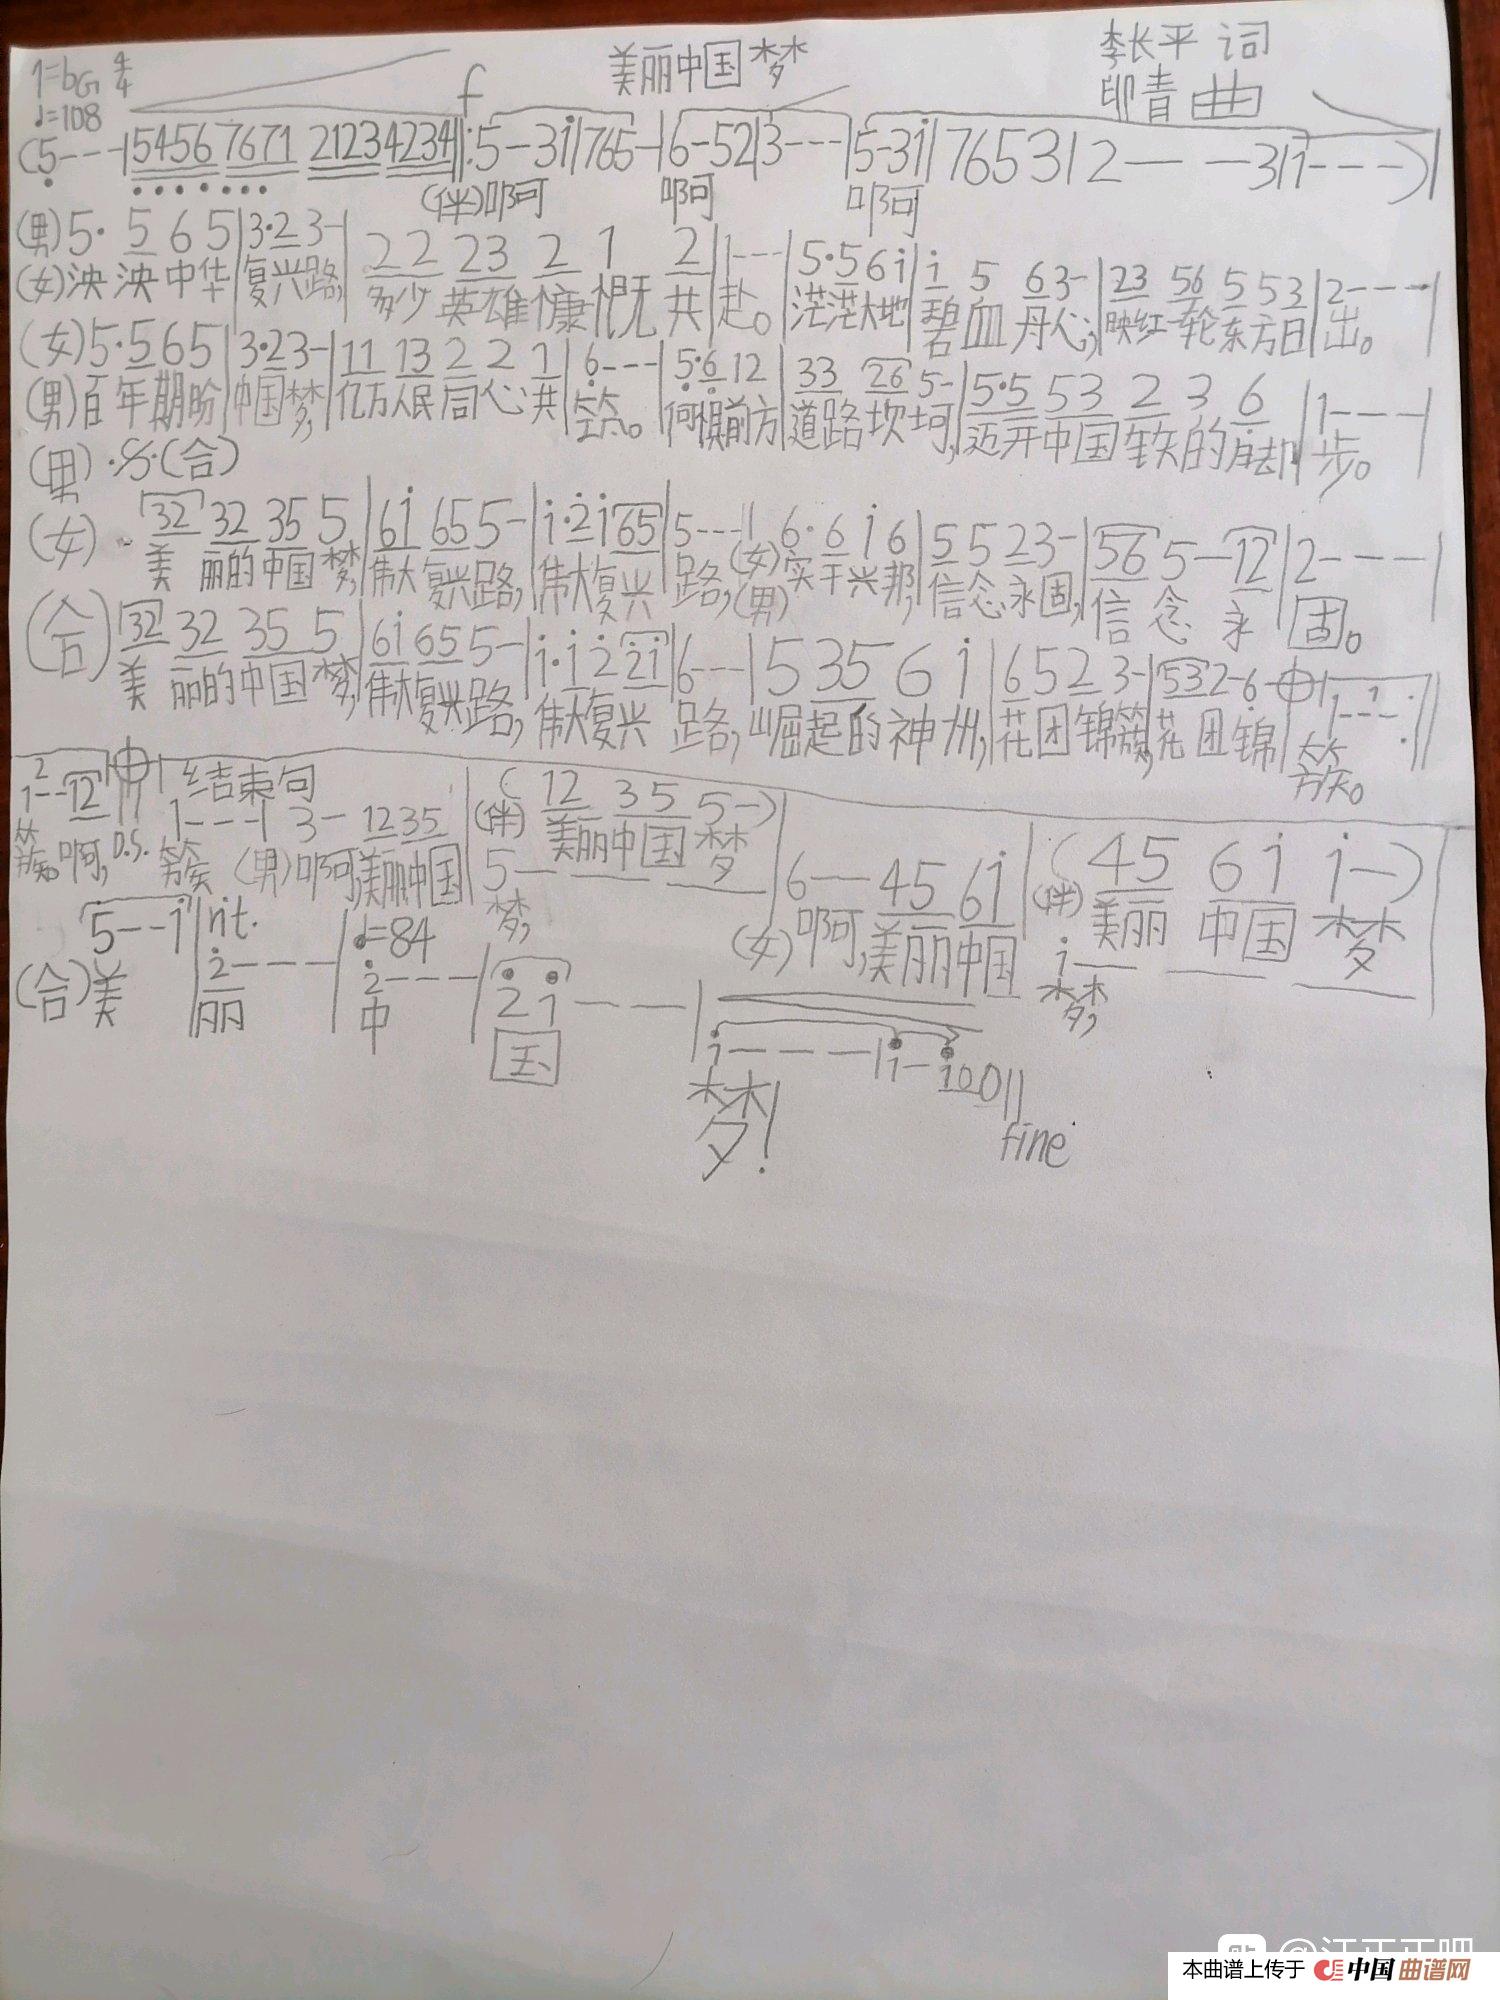 1=bG 4/4 美丽中国梦 李长平 词
♩=108 f 印青 曲
(5---|5456 7671 2123 4234‖:5-3i|765-|6-52|3---|5-3i|7653|2---31|1---)|
(伴)啊 啊 啊
(男)5· 5 6 5|3·2 3-|2 2 23 2 1 2|1---|5·5 6 i|i 5 6 3-|23 56 5 5 3|2---|
(女)泱泱中华 复兴路, 多少英雄慷慨共赴。 茫茫大地 碧血丹心, 映红一轮东方日出。
(女)5·5 6 5|3·2 3-|11 13 2 2 1|6---|5·6 12|33 26 5-|5·5 53 2 3 6|1---|
(男)百年期盼 中国梦, 亿万人民同心共筑。 何惧前方道路坎坷, 迈开中国铁的脚步。
(男)·𝄋·(合)
(女) 32 32 35 5|6i 65 5-|i·2 i 65|5---|6·6 i 6|5 5 2 3-|56 5-12|2---|
美丽的中国梦, 伟大复兴路, 伟大复兴路, (女)实干兴邦, 信念永固, 信念永固。
(男)
(合)32 32 35 5|6i 65 5-|i·i 2 2i|6---|5 35 6 i|6 5 2 3-|53 2-6-𝄌|1 1---:‖
美丽的中国梦, 伟大复兴路, 伟大复兴路, 崛起的神州, 花团锦簇, 花团锦簇。
2 结束句 ( 12 35 5-) (45 6i i-)
1--12‖1---|3-1235|(伴)美丽中国梦
簇。啊, D.S. 簇 (男)啊,美丽中国 5--- 梦, 6--45 6i|(伴)美丽中国梦
(女)啊,美丽中国 i--- 梦,
5--i|rit. 2---|♩=84 2---|2 i---|i----|i-i00‖
(合)美丽中国梦!
fine
本曲谱上传于 中国曲谱网